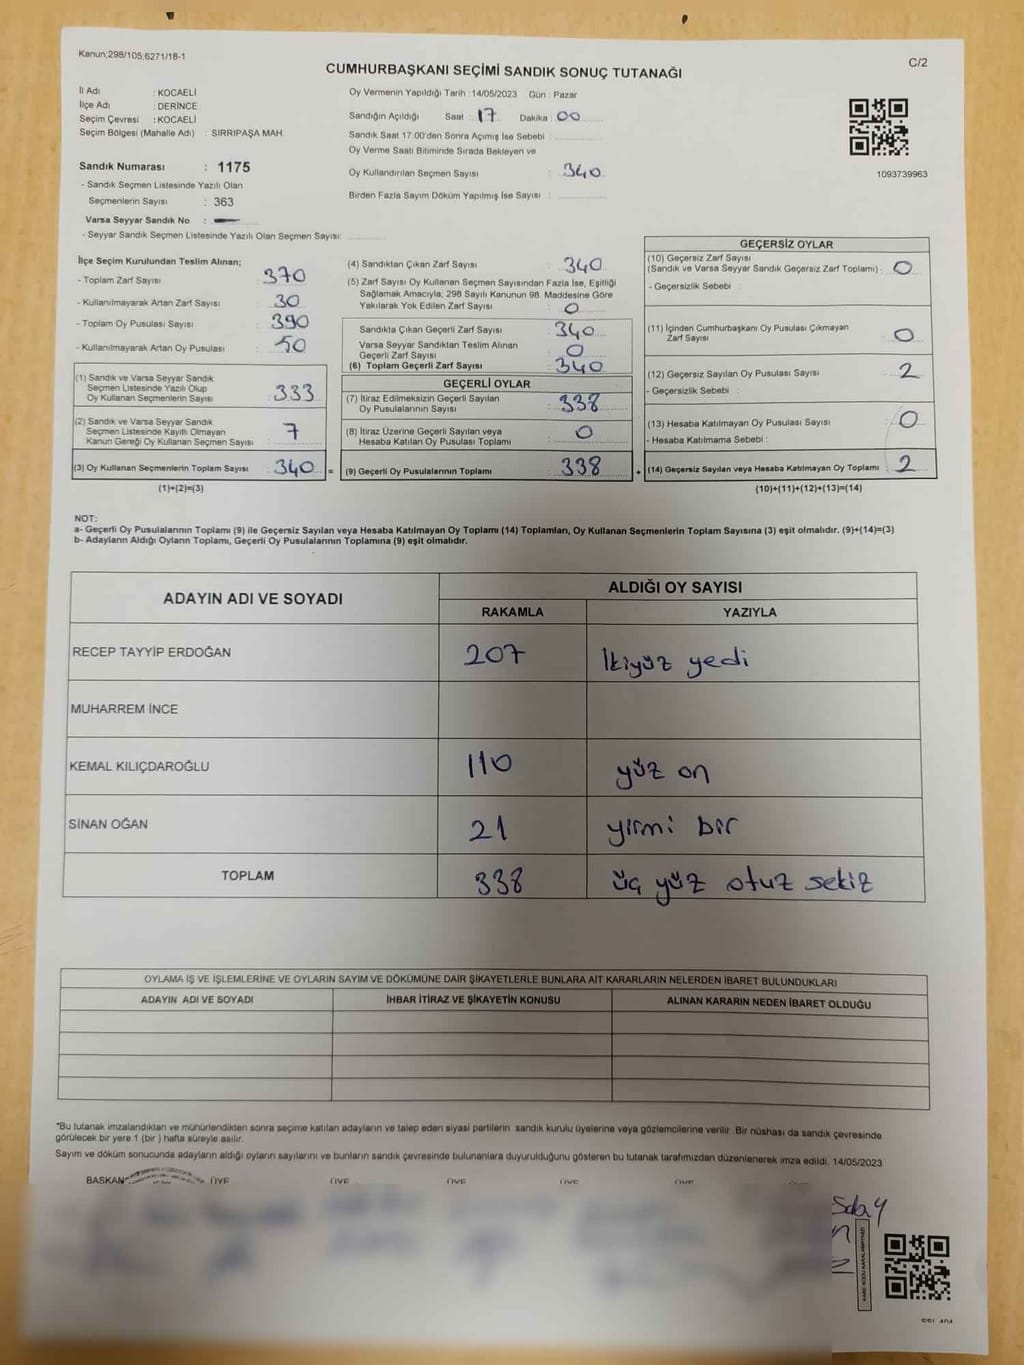 Kanun;298/105;6271/18-1
C/2
CUMHURBAŞKANI SEÇİMİ SANDIK SONUÇ TUTANAĞI
İl Adı : KOCAELİ
İlçe Adı : DERİNCE
Seçim Çevresi : KOCAELİ
Seçim Bölgesi (Mahalle Adı) : SIRRIPAŞA MAH.
Sandık Numarası : 1175
- Sandık Seçmen Listesinde Yazılı Olan
Seçmenlerin Sayısı : 363
Varsa Seyyar Sandık No :
- Seyyar Sandık Seçmen Listesinde Yazılı Olan Seçmen Sayısı:
Oy Vermenin Yapıldığı Tarih :14/05/2023 Gün : Pazar
Sandığın Açıldığı Saat : 17 Dakika : 00
Sandık Saat 17:00'den Sonra Açımış İse Sebebi :
Oy Verme Saati Bitiminde Sırada Bekleyen ve
Oy Kullandırılan Seçmen Sayısı : 340
Birden Fazla Sayım Döküm Yapılmış İse Sayısı :
1093739963
İlçe Seçim Kurulundan Teslim Alınan;
- Toplam Zarf Sayısı : 370
- Kullanılmayarak Artan Zarf Sayısı : 30
- Toplam Oy Pusulası Sayısı : 390
- Kullanılmayarak Artan Oy Pusulası : 50
(1) Sandık ve Varsa Seyyar Sandık
Seçmen Listesinde Yazılı Olup
Oy Kullanan Seçmenlerin Sayısı : 333
(2) Sandık ve Varsa Seyyar Sandık
Seçmen Listesinde Kayıtlı Olmayan
Kanun Gereği Oy Kullanan Seçmen Sayısı : 7
(3) Oy Kullanan Seçmenlerin Toplam Sayısı : 340 =
(1)+(2)=(3)
(4) Sandıktan Çıkan Zarf Sayısı : 340
(5) Zarf Sayısı Oy Kullanan Seçmen Sayısından Fazla İse, Eşitliği
Sağlamak Amacıyla; 298 Sayılı Kanunun 98. Maddesine Göre
Yakılarak Yok Edilen Zarf Sayısı : 0
Sandıkta Çıkan Geçerli Zarf Sayısı : 340
Varsa Seyyar Sandıktan Teslim Alınan
Geçerli Zarf Sayısı : 0
(6) Toplam Geçerli Zarf Sayısı : 340
GEÇERLİ OYLAR
(7) İtiraz Edilmeksizin Geçerli Sayılan
Oy Pusulalarının Sayısı : 338
(8) İtiraz Üzerine Geçerli Sayılan veya
Hesaba Katılan Oy Pusulası Toplamı : 0
(9) Geçerli Oy Pusulalarının Toplamı : 338 +
GEÇERSİZ OYLAR
(10) Geçersiz Zarf Sayısı
(Sandık ve Varsa Seyyar Sandık Geçersiz Zarf Toplamı) : 0
- Geçersizlik Sebebi :
(11) İçinden Cumhurbaşkanı Oy Pusulası Çıkmayan
Zarf Sayısı : 0
(12) Geçersiz Sayılan Oy Pusulası Sayısı : 2
- Geçersizlik Sebebi :
(13) Hesaba Katılmayan Oy Pusulası Sayısı : 0
- Hesaba Katılmama Sebebi :
(14) Geçersiz Sayılan veya Hesaba Katılmayan Oy Toplamı : 2
(10)+(11)+(12)+(13)=(14)
NOT:
a- Geçerli Oy Pusulalarının Toplamı (9) ile Geçersiz Sayılan veya Hesaba Katılmayan Oy Toplamı (14) Toplamları, Oy Kullanan Seçmenlerin Toplam Sayısına (3) eşit olmalıdır. (9)+(14)=(3)
b- Adayların Aldığı Oyların Toplamı, Geçerli Oy Pusulalarının Toplamına (9) eşit olmalıdır.
ADAYIN ADI VE SOYADI
ALDIĞI OY SAYISI
RAKAMLA YAZIYLA
RECEP TAYYİP ERDOĞAN 207 İkiyüz yedi
MUHARREM İNCE
KEMAL KILIÇDAROĞLU 110 yüz on
SİNAN OĞAN 21 yirmi bir
TOPLAM 338 üç yüz otuz sekiz
OYLAMA İŞ VE İŞLEMLERİNE VE OYLARIN SAYIM VE DÖKÜMÜNE DAİR ŞİKAYETLERLE BUNLARA AİT KARARLARIN NELERDEN İBARET BULUNDUKLARI
ADAYIN ADI VE SOYADI İHBAR İTİRAZ VE ŞİKAYETİN KONUSU ALINAN KARARIN NEDEN İBARET OLDUĞU
"Bu tutanak imzalandıktan ve mühürlendikten sonra seçime katılan adayların ve talep eden siyasi partilerin sandık kurulu üyelerine veya gözlemcilerine verilir .Bir nüshası da sandık çevresinde
görülecek bir yere 1 (bir ) hafta süreyle asılır.
Sayım ve döküm sonucunda adayların aldığı oyların sayılarını ve bunların sandık çevresinde bulunanlara duyurulduğunu gösteren bu tutanak tarafımızdan düzenlenerek imza edildi. 14/05/2023
BAŞKAN ÜYE ÜYE ÜYE ÜYE ÜYE